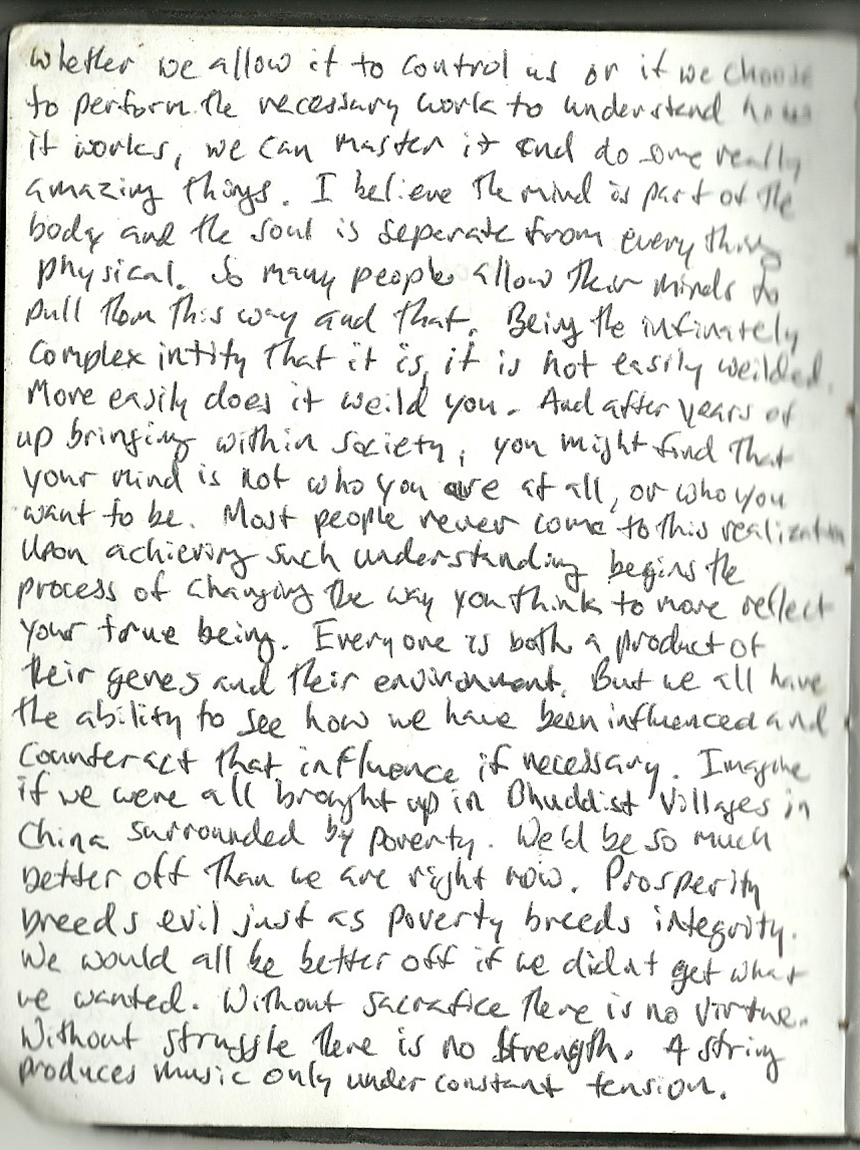 whether we allow it to control us or if we choose
to perform the necessary work to understand how
it works, we can master it and do some really
amazing things. I believe the mind is part of the
body and the soul is seperate from everything
physical. So many people allow their minds to
pull them this way and that. Being the infinately
complex intity that it is, it is not easily weilded.
More easily does it weild you. And after years of
up bringing within society, you might find that
your mind is not who you are at all, or who you
want to be. Most people never come to this realization
Upon achieving such understanding begins the
process of changing the way you think to more reflect
your true being. Everyone is both a product of
their genes and their environment. But we all have
the ability to see how we have been influenced and
counteract that influence if necessary. Imagine
if we were all brought up in Bhuddist Villages in
China surrounded by poverty. We'd be so much
better off than we are right now. Prosperity
breeds evil just as poverty breeds integrity.
We would all be better off if we didnt get what
we wanted. Without sacrafice there is no virtue.
Without struggle there is no strength. A string
produces music only under constant tension.